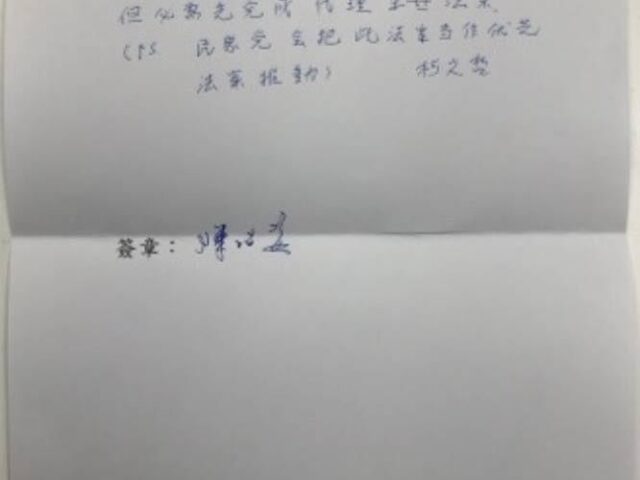 但必需先完成 代理孕母法案
(PS 民眾党会把此法案当作优先
法案推動) 柯文哲
簽章：陳昭姿